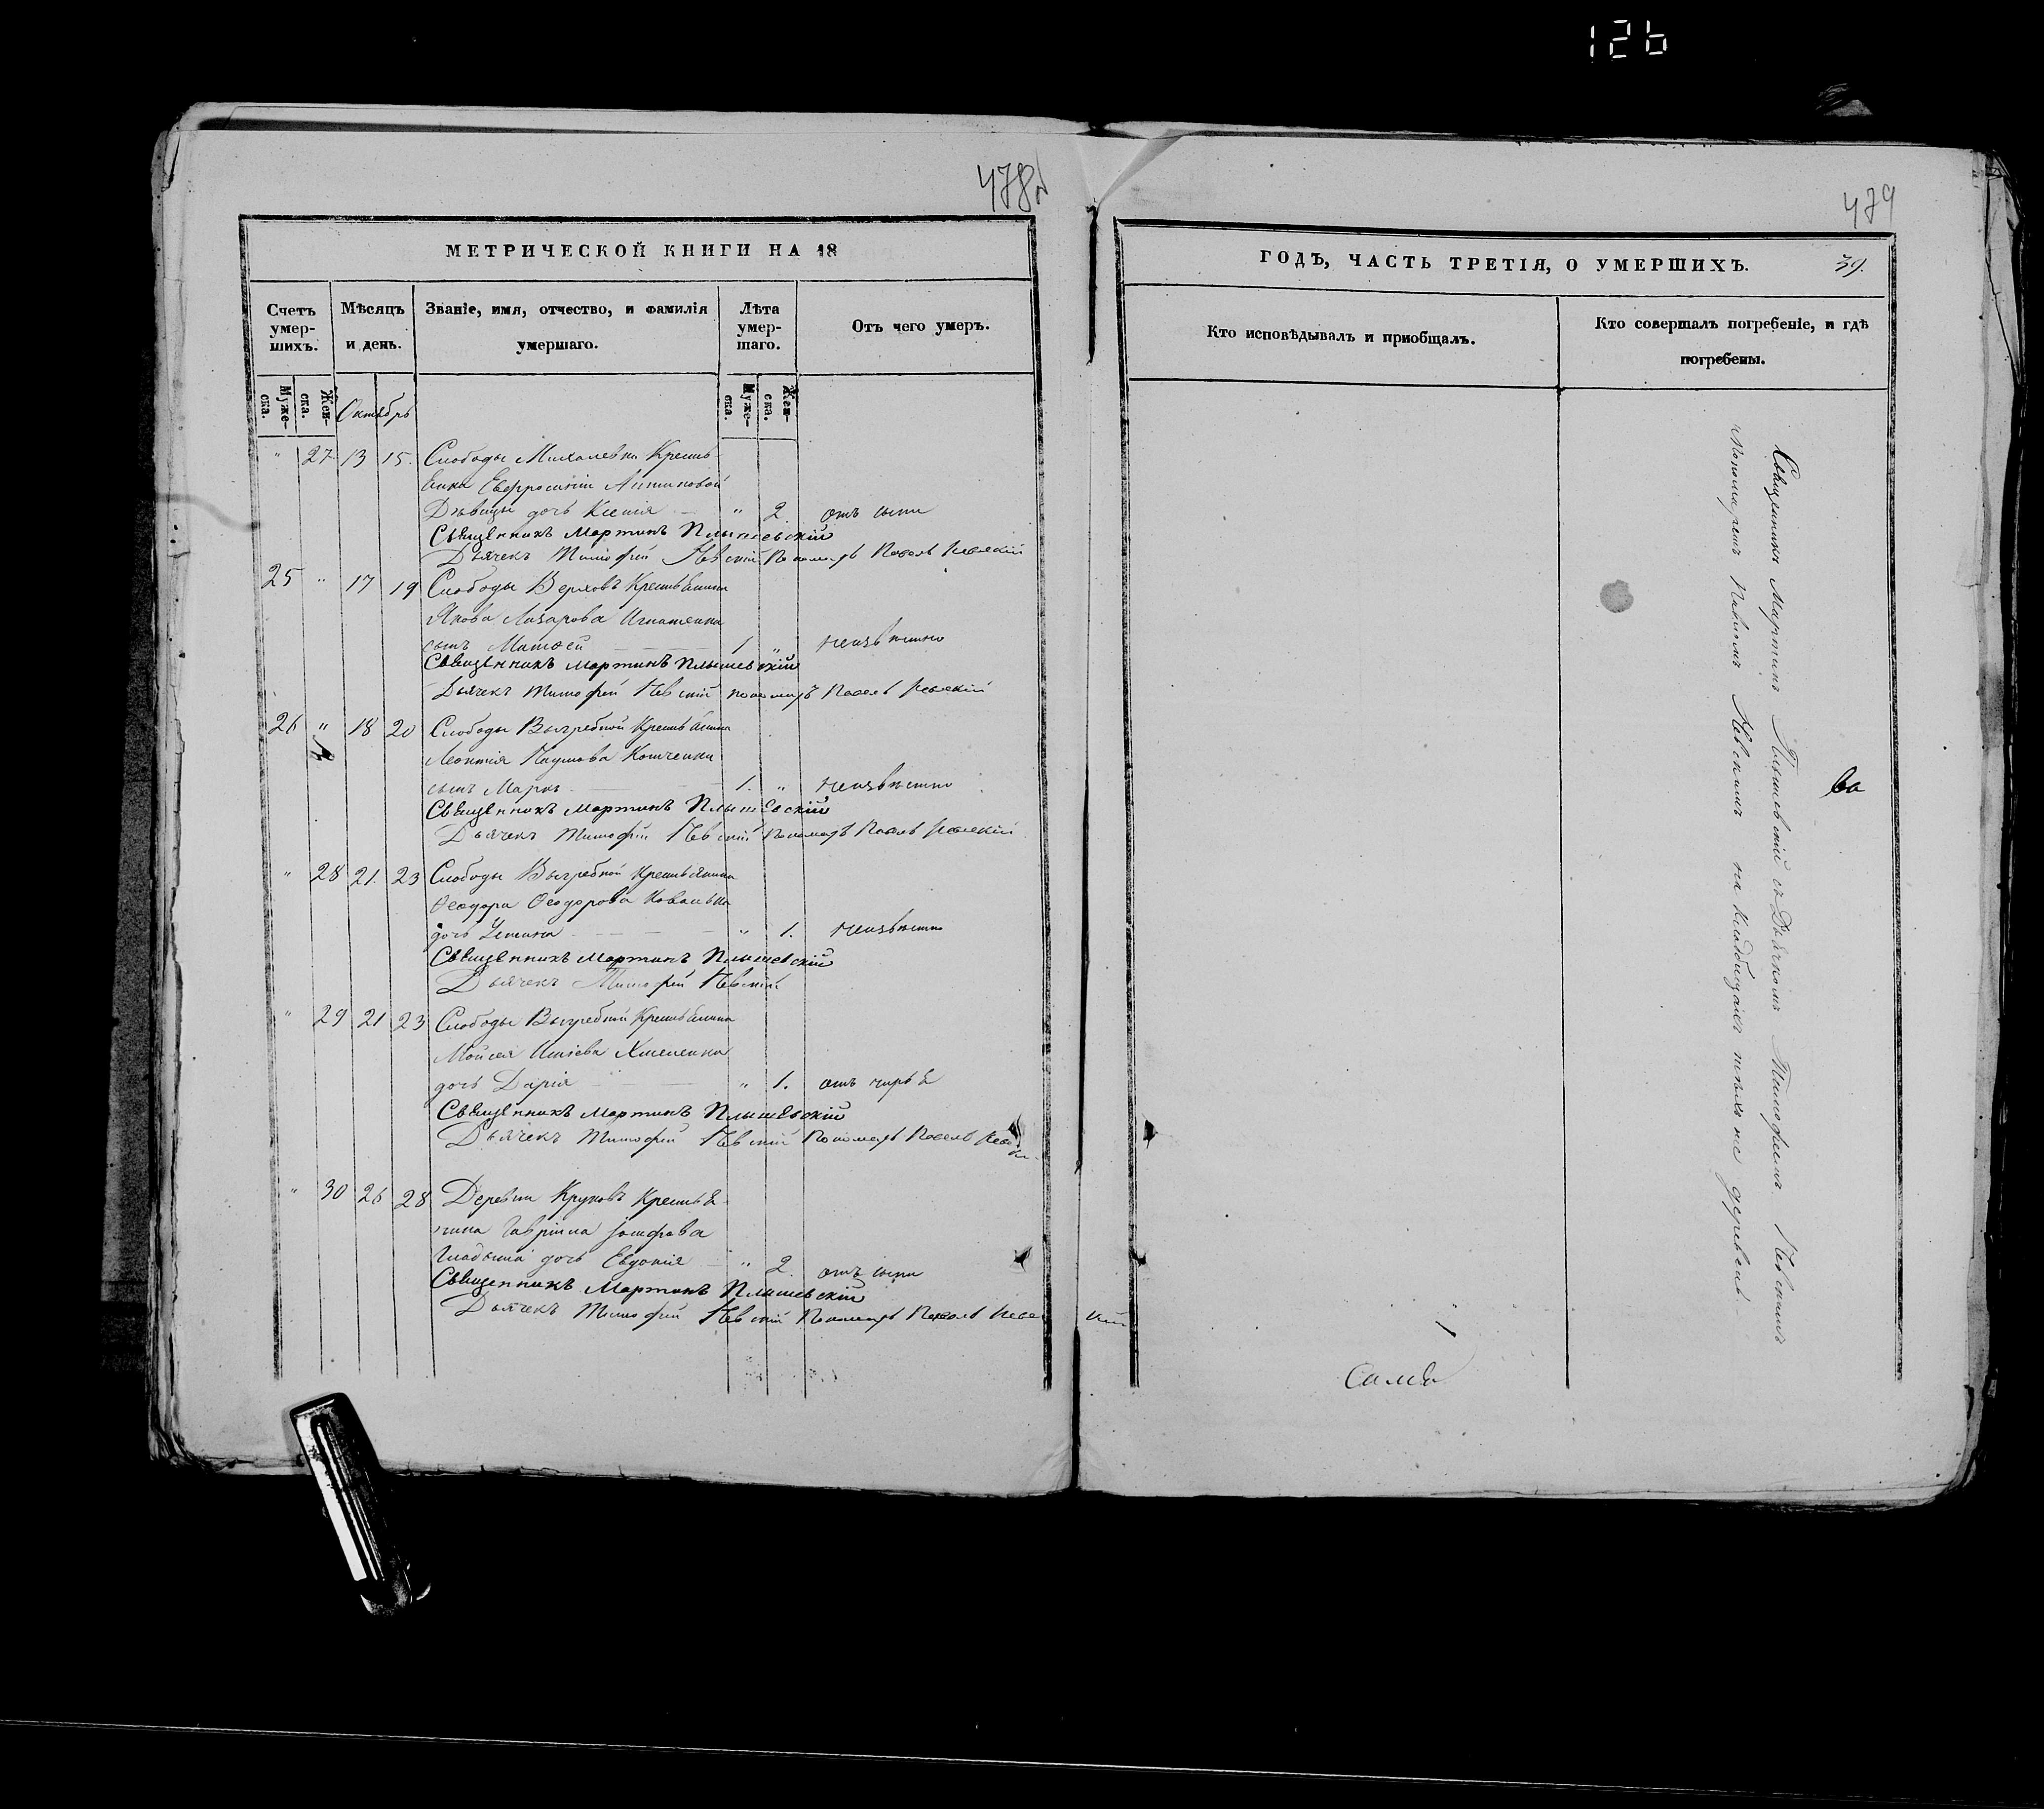 126
478об
479
МЕТРИЧЕСКОЙ КНИГИ НА 18
ГОДЪ, ЧАСТЬ ТРЕТІЯ, О УМЕРШИХЪ.
39.
Счетъ умер-шихъ.
Мѣсяцъ и день.
Званіе, имя, отчество, и фамилія умершаго.
Лѣта умер-шаго.
Отъ чего умеръ.
Кто исповѣдывалъ и приобщалъ.
Кто совершалъ погребеніе, и гдѣ погребены.
Муже-ска.
Жен-ска.
Октябрь
Муже-ска.
Жен-ска.
" 27 13 15. Слободы Михалевки Крестья-
нина Евфросиніи Антиповой
Дѣвицы дочь Ксенія " 2 отъ сыпи
Священникъ Мартинъ Плышевскій
Дьячекъ Тимофей Невскій Пономарь Павелъ Невскій
25 " 17 19 Слободы Верховъ Крестьянина
Якова Лазарова Игнатенка
сынъ Матѳей 1 " неизвѣстно
Священникъ Мартинъ Плышевскій
Дьячекъ Тимофей Невскій пономарь Павелъ Невскій
26 " 18 20 Слободы Выгребной Крестьянина
Леонтія Наумова Костенка
сынъ Марко 1. " неизвѣстно
Священникъ Мартинъ Плышевскій
Дьячекъ Тимофей Невскій Пономарь Павелъ Невскій
" 28 21. 23 Слободы Выгребной Крестьянина
Ѳеодора Ѳеодорова Ковалька
дочь Устина " 1. неизвѣстно
Священникъ Мартинъ Плышевскій
Дьячекъ Тимофей Невскій
" 29 21 23 Слободы Выгребной Крестьянина
Мойсея Хмеленка
дочь Дарія " 1. отъ чирья
Священникъ Мартинъ Плышевскій
Дьячекъ Тимофей Невскій Пономарь Павелъ Невскій
" 30 26 28 Деревни Круковъ Крестья-
нина Гавріила
дочь Евдокія " 2 отъ сыпи
Священникъ Мартинъ Плышевскій
Дьячекъ Тимофей Невскій Пономарь Павелъ Невскій
Священникъ Мартинъ Плышевскій съ Дьячкомъ Тимофеемъ Невскимъ
Пономаремъ Павломъ Невскимъ на кладбищахъ тѣхъ же деревень